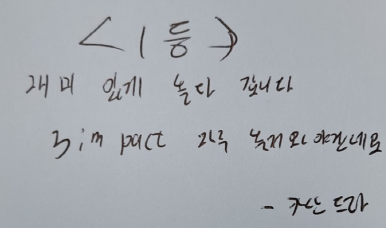 <1등>
재미 있게 놀다 갑니다
3im pact 자주 놀러와야겠네요
- 카산드라